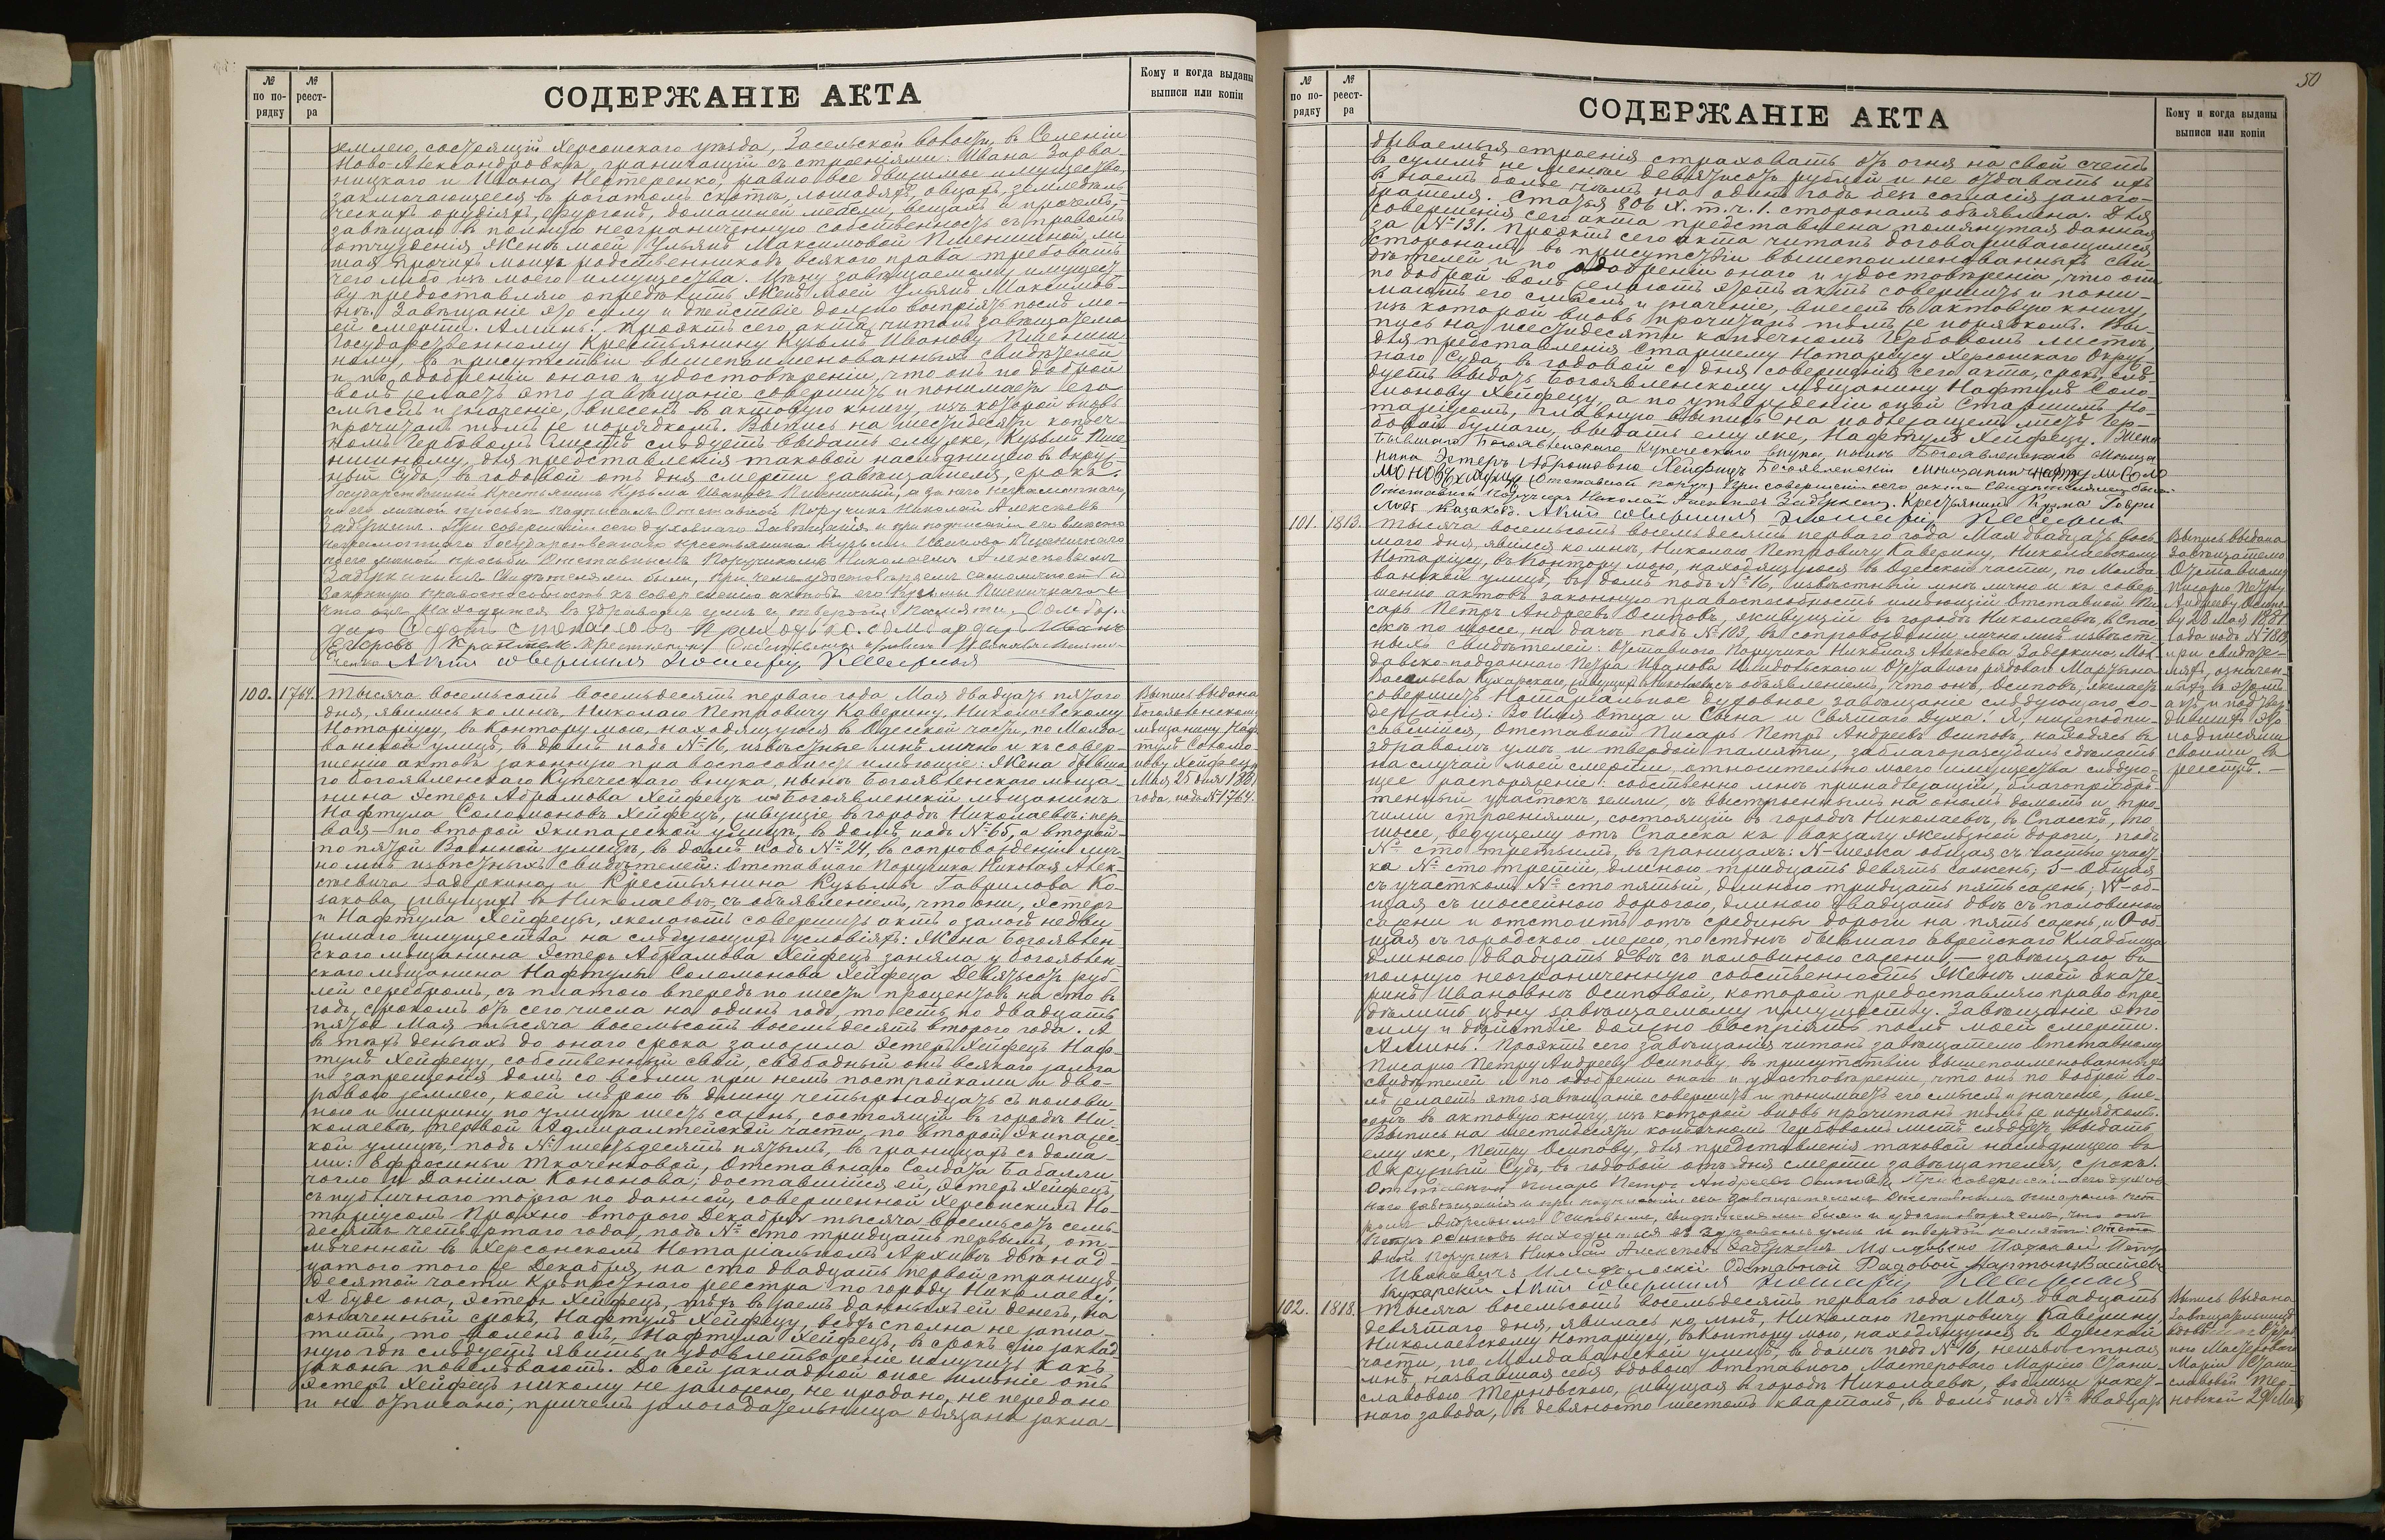 № по порядку
№ реестра
СОДЕРЖАНІЕ АКТА
Кому и когда выданы выписи или копіи
землею, состоящій Херсонскаго уѣзда, Засельской волости, въ Селеніи
Ново-Александровкѣ, граничащій съ строеніями: Ивана Зарва-
ницкаго и Ивана Нестеренко, равно все движимое имущество,
заключающееся въ рогатомъ скотѣ, лошадяхъ, овцахъ, земледѣль-
ческихъ орудіяхъ, фургонѣ, домашней мебели, вещахъ и прочемъ,
завѣщаю въ полную неограниченную собственность съ правомъ
отчужденія женѣ моей Ульянѣ Максимовой Пшеничной, ли-
шая прочихъ моихъ родственниковъ всякаго права требовать
чего либо изъ моего имущества. Цѣну завѣщаемому имущест-
ву предоставляю опредѣлить женѣ моей Ульянѣ Максимов-
нѣ. Завѣщаніе это силу и дѣйствіе должно воспріять послѣ мо-
ей смерти. Аминь. Проэктъ сего акта читанъ завѣщателю
Государственному Крестьянину Кузьмѣ Иванову Пшенич-
ному, въ присутствіи вышепоименованныхъ свидѣтелей
и по одобреніи онаго и удостовѣреніи, что онъ по доброй
волѣ желаетъ это завѣщаніе совершить и понимаетъ его
смыслъ и значеніе, внесенъ въ актовую книгу, изъ которой вновь
прочитанъ тѣмъ же порядкомъ. Выпись на шестидесяти копѣеч-
номъ Гербовомъ листѣ слѣдуетъ выдать ему же, Кузьмѣ Пше-
ничному, для представленія таковой наслѣдницею въ Окруж-
ный Судъ, въ годовой отъ дня смерти завѣщателя, срокъ.
Государственный Крестьянинъ Кузьма Ивановъ Пшеничный, а за него неграмотнаго
по его личной просьбѣ подписалъ Отставной Поручикъ Николай Алексѣевъ
Задеркинъ. При совершеніи сего духовнаго завѣщанія и при подписаніи его вмѣсто
неграмотнаго Государственнаго крестьянина Кузьмы Иванова Пшеничнаго
по его личной просьбѣ Отставнымъ Поручикомъ Николаемъ Алексѣевымъ
Задеркинымъ Свидѣтелями были, при чемъ удостовѣряемъ самоличность и
законную правоспособность къ совершенію актовъ его Кузьмы Пшеничнаго и
что онъ находится въ здравомъ умѣ и твердой памяти.
Егоровъ
Актъ совершилъ Нотаріусъ
100.
1764.
Тысяча восемьсотъ восемьдесятъ перваго года Мая двадцать пятаго
дня, явились ко мнѣ, Николаю Петровичу Каверину, Николаевскому
Нотаріусу, въ Контору мою, находящуюся въ Одесской части, по Молда-
ванской улицѣ, въ домѣ подъ № 16, извѣстные мнѣ лично и къ совер-
шенію актовъ законную правоспособность имѣющіе: Жена бывша-
го Богоявленскаго Купеческаго внука, нынѣ Богоявленскаго мѣща-
нина Эстеръ Абрамова Хейфецъ и Богоявленскій мѣщанинъ
Нафтула Соломоновъ Хейфецъ, живущіе въ городѣ Николаевѣ: пер-
вая - по второй Экипажеской улицѣ, въ домѣ подъ № 65, а второй -
по пятой Военной улицѣ, въ домѣ подъ № 24, въ сопровожденіи лич-
но мнѣ извѣстныхъ свидѣтелей: Отставнаго Поручика Николая Алек-
сѣевича Задеркина и Крестьянина Кузьмы Гаврилова Ко-
закова, живущихъ въ Николаевѣ, съ объявленіемъ, что они, Эстеръ
и Нафтула Хейфецы, желаютъ совершить актъ о залогѣ недви-
жимаго имущества на слѣдующихъ условіяхъ: Жена Богоявлен-
скаго мѣщанина Эстеръ Абрамова Хейфецъ заняла у Богоявлен-
скаго мѣщанина Нафтулы Соломонова Хейфеца девятьсотъ руб-
лей серебромъ, съ платою впередъ по шести процентовъ на сто въ
годъ, срокомъ отъ сего числа на одинъ годъ, то есть по двадцать
пятое Мая тысяча восемьсотъ восемьдесятъ втораго года. А
въ тѣхъ деньгахъ до онаго срока заложила Эстеръ Хейфецъ Наф-
тулѣ Хейфецу, собственный свой, свободный отъ всякаго залога
и запрещенія домъ со всѣми при немъ постройками и дво-
ровою землею, коей мѣрою въ длину четырнадцать съ полови-
ною и ширину по улицѣ шесть сажень, состоящій въ городѣ Ни-
колаевѣ, первой Адмиралтейской части, по второй Экипажес-
кой улицѣ, подъ № шестьдесятъ пятымъ, въ границахъ съ дома-
ми: Ефросиньи Ткаченковой, Отставнаго Солдата Бабалли-
чогло и Даніила Кононова; доставшійся ей, Эстеръ Хейфецъ,
съ публичнаго торга по данной, совершенной Херсонскимъ Но-
таріусомъ Прохно втораго Декабря тысяча восемьсотъ семь-
десятъ четвертаго года, подъ № сто тридцать первымъ, от-
мѣченной въ Херсонскомъ Нотаріальномъ Архивѣ двѣнад-
цатаго того же Декабря, на сто двадцать первой страницѣ,
десятой части крѣпостнаго реестра по городу Николаеву.
А буде она, Эстеръ Хейфецъ, тѣхъ взаемъ данныхъ ей денегъ, на
означенный срокъ, Нафтулѣ Хейфецу, всѣхъ сполна не запла-
титъ, то воленъ онъ, Нафтула Хейфецъ, въ срокъ сію заклад-
ную гдѣ слѣдуетъ явить и удовлетвореніе получить какъ
законы повелѣваютъ. До сей закладной оное имѣніе отъ
Эстеръ Хейфецъ никому не заложено, не продано, не передано
и не отписано; причемъ залогодательница обязана закла-
Выпись выдана
Богоявленскому
мѣщанину Наф-
тулѣ Соломо-
нову Хейфецу
Мая 25 дня 1881
года, подъ № 1764.
50
№ по порядку
№ реестра
СОДЕРЖАНІЕ АКТА
Кому и когда выданы выписи или копіи
дываемыя строенія страховать отъ огня на свой счетъ
въ суммѣ не менѣе девятисотъ рублей и не отдавать ихъ
въ наемъ болѣе чѣмъ на одинъ годъ безъ согласія залого-
брателя. Статья 806 X. т. ч. 1. сторонамъ объявлена. Для
совершенія сего акта представлена помянутая данная
за № 131. Проэктъ сего акта читанъ договаривающимся
сторонамъ въ присутствіи вышепоименованныхъ сви-
дѣтелей и по одобреніи онаго и удостовѣреніи, что они
по доброй волѣ желаютъ этотъ актъ совершить и пони-
маютъ его смыслъ и значеніе, внесенъ въ актовую книгу,
изъ которой вновь прочитанъ тѣмъ же порядкомъ. Вы-
пись на шестидесяти копѣечномъ Гербовомъ листѣ,
для представленія Старшему Нотаріусу Херсонскаго Окруж-
наго Суда, въ годовой со дня совершенія сего акта, срокъ, слѣ-
дуетъ выдать Богоявленскому мѣщанину Нафтулѣ Соло-
монову Хейфецу, а по утвержденіи оной Старшимъ Но-
таріусомъ, главную выпись на подлежащемъ листѣ гер-
бовой бумаги, выдать ему же, Нафтулѣ Хейфецу. Жена
бывшаго Богоявленскаго Купеческаго внука, нынѣ Богоявленскаго мѣща-
нина Эстеръ Абрамовна Хейфицъ Богоявленскій мѣщанинъ Нафтули Соло
моновъ Хайфицъ При совершеніи сего акта Свидѣтелями были
Отставной Поручикъ Николай Алексѣевъ Задеркинъ. Крестьянинъ Кузма Гаври
ловъ Казаковъ. Актъ совершилъ Нотаріусъ
101.
1813.
Тысяча восемьсотъ восемьдесятъ перваго года Мая двадцать вось-
маго дня, явился ко мнѣ, Николаю Петровичу Каверину, Николаевскому
Нотаріусу, въ Контору мою, находящуюся въ Одесской части, по Молда-
ванской улицѣ, въ домѣ подъ № 16, извѣстный мнѣ лично и къ совер-
шенію актовъ законную правоспособность имѣющій Отставной Пи-
сарь Петръ Андреевъ Осиповъ, живущій въ городѣ Николаевѣ, въ Спас-
скѣ по шоссе, на дачѣ подъ № 103, въ сопровожденіи лично мнѣ извѣст-
ныхъ свидѣтелей: Отставнаго Поручика Николая Алексѣева Задеркина, Мол-
давско-подданнаго Петра Иванова Шидловскаго и Отставнаго рядоваго Мартына
Васильева Кухарскаго, живущихъ въ Николаевѣ, съ объявленіемъ, что онъ, Осиповъ, желаетъ
совершить Нотаріальное духовное завѣщаніе слѣдующаго со-
держанія: Во Имя Отца и Сына и Святаго Духа. Я, нижеподпи-
савшійся, Отставной Писарь Петръ Андреевъ Осиповъ, находясь въ
здравомъ умѣ и твердой памяти, заблагоразсудилъ сдѣлать
на случай моей смерти, относительно моего имущества слѣдую-
щее распоряженіе: собственно мнѣ принадлежащій, благопріобрѣ-
тенный участокъ земли, съ выстроеннымъ на ономъ домомъ и про-
чими строеніями, состоящій въ городѣ Николаевѣ, въ Спасскѣ, по
шоссе, ведущему отъ Спасска къ вокзалу желѣзной дороги, подъ
№ сто третьимъ, въ границахъ: N - межа общая съ частью участ-
ка № сто третій, длиною тридцать девять сажень; S - общая
съ участкомъ № сто пятый, длиною тридцать пять сажень; W - об-
щая съ шоссейною дорогою, длиною двадцать двѣ съ половиною
сажени и отстоитъ отъ средины дороги на пять сажень, и O - об-
щая съ городскою межею, по стѣнѣ бывшаго Еврейскаго Кладбища
длиною двадцать двѣ съ половиною сажени, - завѣщаю въ
полную неограниченную собственность женѣ моей Екате-
ринѣ Ивановнѣ Осиповой, которой предоставляю право опре-
дѣлить цѣну завѣщаемому имуществу. Завѣщаніе это
силу и дѣйствіе должно воспріять послѣ моей смерти.
Аминь. Проэктъ сего завѣщанія читанъ завѣщателю Отставному
Писарю Петру Андрееву Осипову въ присутствіи вышепоименованныхъ
свидѣтелей и по одобреніи онаго и удостовѣреніи, что онъ по доброй во-
лѣ желаетъ это завѣщаніе совершить и понимаетъ его смыслъ и значеніе, вне-
сенъ въ актовую книгу, изъ которой вновь прочитанъ тѣмъ же порядкомъ.
Выпись на шестидесяти копѣечномъ Гербовомъ листѣ слѣдуетъ выдать
ему же, Петру Осипову, для представленія таковой наслѣдницею въ
Окружный Судъ, въ годовой отъ дня смерти завѣщателя, срокъ.
Отставной писарь Петръ Андреевъ Осиповъ. При совершеніи сего духов-
наго завѣщанія и при подписаніи его завѣщателемъ Отставнымъ писаремъ Пет-
ромъ Андреевымъ Осиповымъ, свидѣтелями были и удостовѣряемъ, что онъ
Петръ Осиповъ находится въ здравомъ умѣ и твердой памяти: Отста
вной Поручикъ Николай Алексѣевъ Задеркинъ Молдавско Подданый Петръ
Ивановичъ Отставной Рядовой Мартынъ Василев
Кухарскій Актъ совершилъ Нотаріусъ
Выпись выдана
завѣщателю
Отставному
Писарю Петру
Андрееву Осипо-
ву 28 Мая 1881
года подъ № 1813
при свидѣте-
ляхъ, означен-
ныхъ въ этомъ
актѣ и подтвер-
дившихъ это
подписями
своими въ
реестрѣ. -
102.
1818.
Тысяча восемьсотъ восемьдесятъ перваго года Мая двадцать
девятаго дня, явилась ко мнѣ, Николаю Петровичу Каверину,
Николаевскому Нотаріусу, въ Контору мою, находящуюся въ Одесской
части, по Молдаванской улицѣ, въ домѣ подъ № 16, неизвѣстная
мнѣ, назвавшая себя вдовою Отставнаго Мастероваго Маріею Стани-
славовою Терновскою, живущая въ городѣ Николаевѣ, вблизи ракет-
наго завода, въ девяносто шестомъ кварталѣ, въ домѣ подъ № двадцать
Выпись выдана
Завѣщательницѣ
вдовѣ Отстав
наго Мастероваго
Маріи Стани-
славовой Тер-
новской 29 Мая